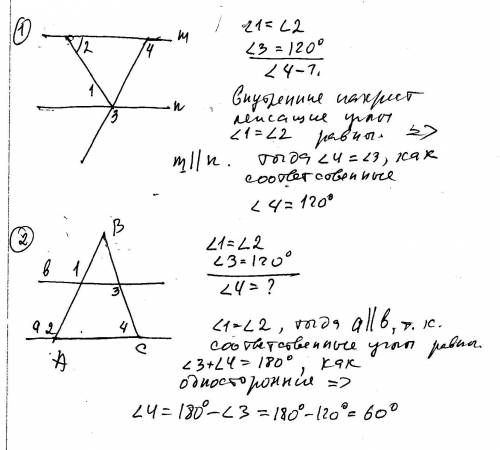 1
m
2
4
1
n
3
∠1=∠2
∠3=120°
∠4-?
Внутренние накрест
лежащие углы
∠1=∠2 равны. =>
m||n. тогда ∠4=∠3, как
соответственные
∠4=120°
2
B
b
1
3
a
2
4
A
C
∠1=∠2
∠3=120°
∠4=?
∠1=∠2, тогда a||b, т.к.
соответственные углы равны.
∠3+∠4=180°, как
односторонние =>
∠4=180°-∠3=180°-120°=60°